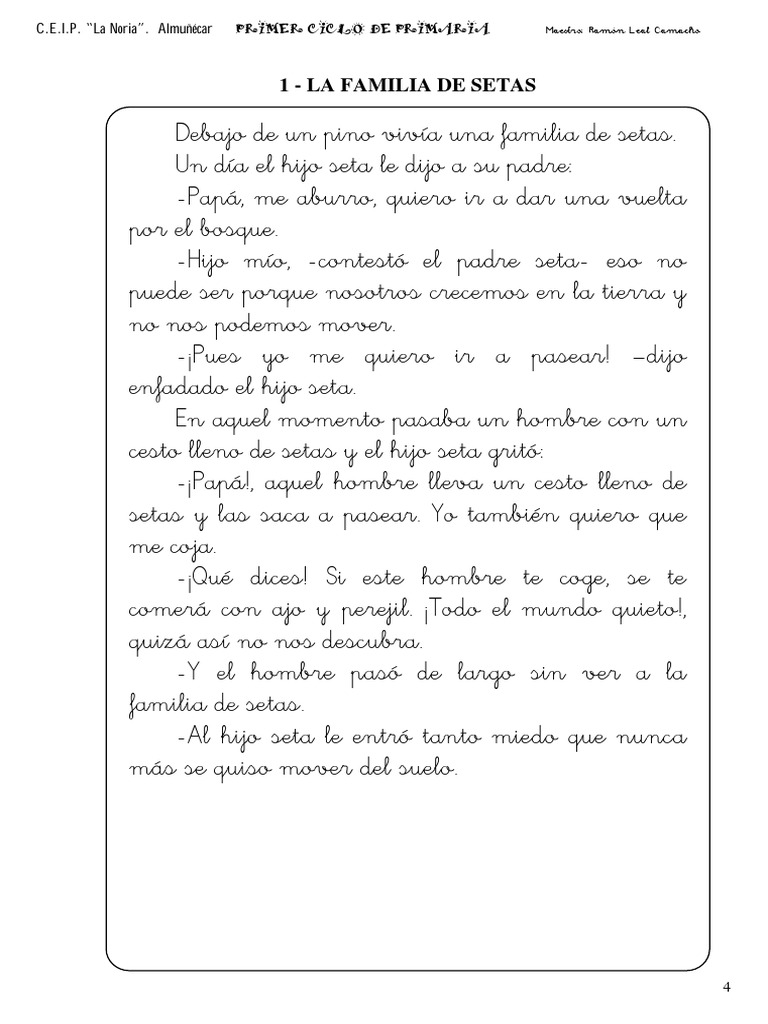 C.E.I.P. “La Noria”. Almuñécar PRIMER CICLO DE PRIMARIA Maestro: Ramón Leal Camacho
1 - LA FAMILIA DE SETAS
Debajo de un pino vivía una familia de setas.
Un día el hijo seta le dijo a su padre:
-Papá, me aburro, quiero ir a dar una vuelta
por el bosque.
-Hijo mío, -contestó el padre seta- eso no
puede ser porque nosotros crecemos en la tierra y
no nos podemos mover.
-¡Pues yo me quiero ir a pasear! –dijo
enfadado el hijo seta.
En aquel momento pasaba un hombre con un
cesto lleno de setas y el hijo seta gritó:
-¡Papá!, aquel hombre lleva un cesto lleno de
setas y las saca a pasear. Yo también quiero que
me coja.
-¡Qué dices! Si este hombre te coge, se te
comerá con ajo y perejil. ¡Todo el mundo quieto!,
quizá así no nos descubra.
-Y el hombre pasó de largo sin ver a la
familia de setas.
-Al hijo seta le entró tanto miedo que nunca
más se quiso mover del suelo.
4